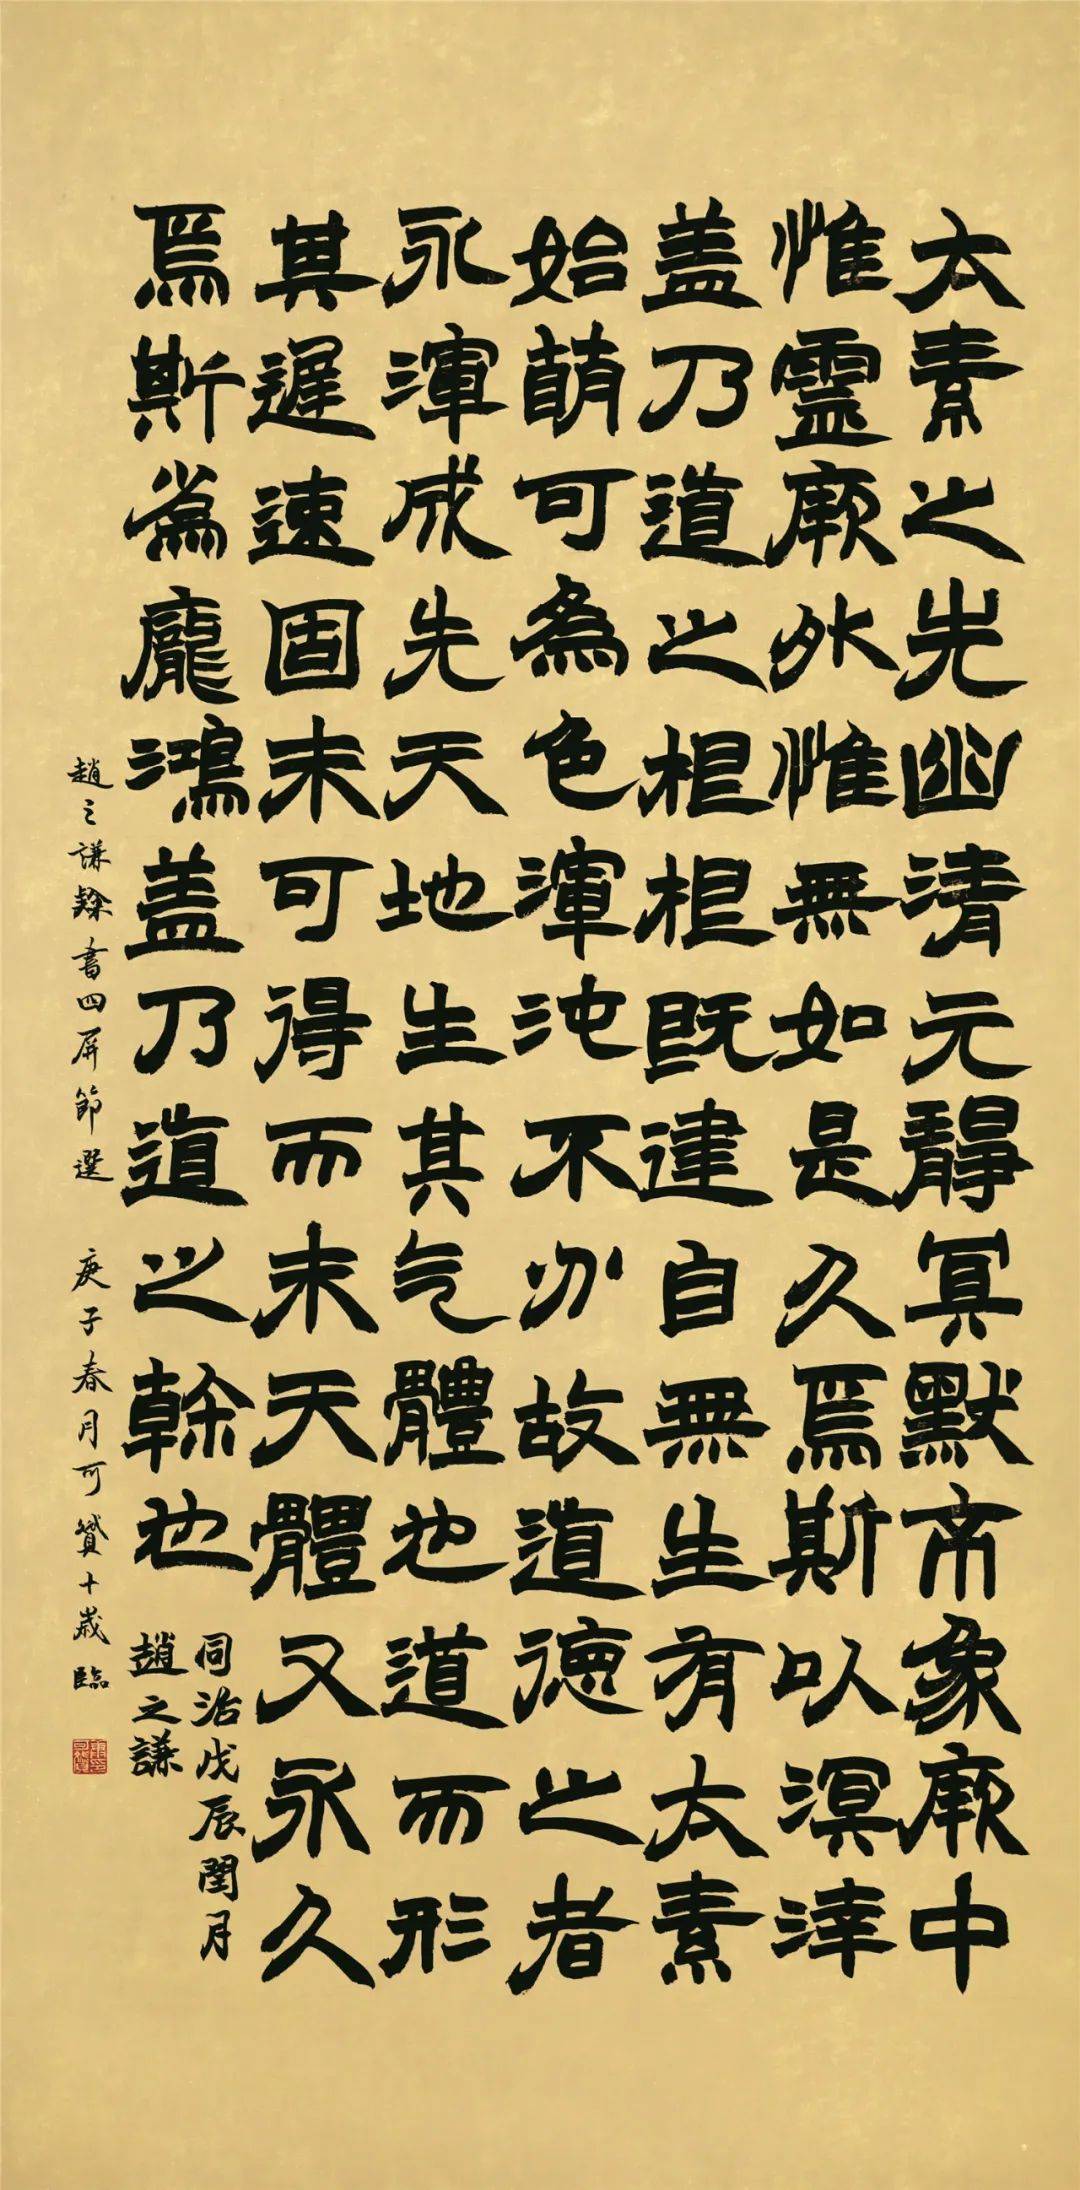 太素之先幽清元靜冥默象厥中
惟靈厥外惟無如是久焉斯以溟涬
盖乃道之根根既建自無生有太素
始萌可為色渾沌不分故道德之者
永渾成先天地生其气體也道而形
其遲速固未可得而未天體又永久
焉斯為龐鴻盖乃道之幹也
同治戊辰閏月
趙之謙
趙之謙隸書四屏節選 庚子春月可贇十歲臨